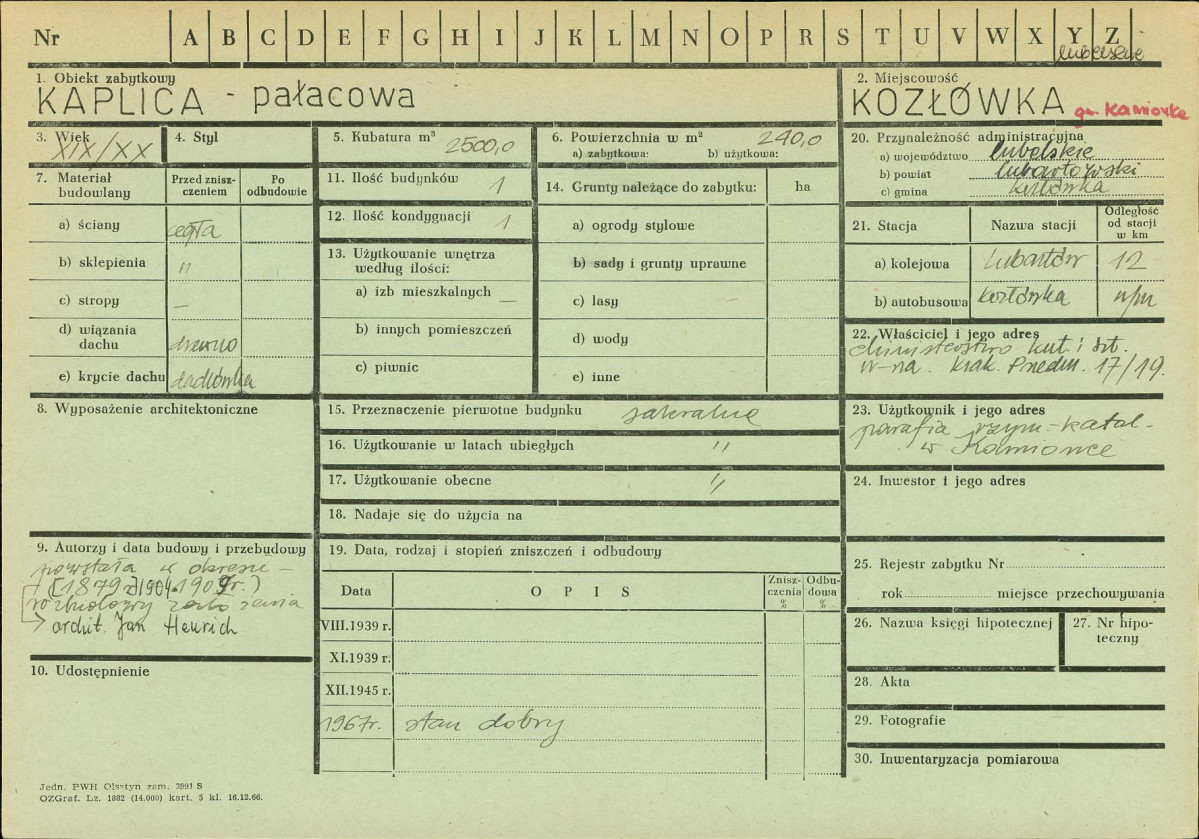 Nr A B C D E F G H I J K L M N O P R S T U V W X Y Z
lubelskie
1. Obiekt zabytkowy
KAPLICA - pałacowa
2. Miejscowość
KOZŁÓWKA gm. Kamionka
3. Wiek
XIX/XX
4. Styl
5. Kubatura m³ 2500,0
6. Powierzchnia w m² 240,0
a) zabytkowa: b) użytkowa:
7. Materiał budowlany
Przed zniszczeniem
Po odbudowie
a) ściany cegła
b) sklepienia "
c) stropy —
d) wiązania dachu drewno
e) krycie dachu dachówka
8. Wyposażenie architektoniczne
9. Autorzy i data budowy i przebudowy
powstała w okresie -
(1879 i 1904-1909r.)
rozbudowy założenia
archit. Jan Heurich
10. Udostępnienie
11. Ilość budynków 1
12. Ilość kondygnacji 1
13. Użytkowanie wnętrza według ilości:
a) izb mieszkalnych —
b) innych pomieszczeń
c) piwnic
14. Grunty należące do zabytku: ha
a) ogrody stylowe
b) sady i grunty uprawne
c) lasy
d) wody
e) inne
15. Przeznaczenie pierwotne budynku sakralne
16. Użytkowanie w latach ubiegłych "
17. Użytkowanie obecne "
18. Nadaje się do użycia na
19. Data, rodzaj i stopień zniszczeń i odbudowy
Data OPIS Zniszczenia % Odbudowa %
VIII.1939 r.
XI.1939 r.
XII.1945 r.
1967r. stan dobry
20. Przynależność administracyjna
a) województwo lubelskie
b) powiat lubartowski
c) gmina Kozłówka
21. Stacja Nazwa stacji Odległość od stacji w km
a) kolejowa Lubartów 12
b) autobusowa Kozłówka n/m
22. Właściciel i jego adres
Ministerstwo Kult. i Szt.
W-wa. Krak. Przedm. 17/19.
23. Użytkownik i jego adres
parafia rzym.-katol.
w Kamionce
24. Inwestor i jego adres
25. Rejestr zabytku Nr
rok miejsce przechowywania
26. Nazwa księgi hipotecznej
27. Nr hipoteczny
28. Akta
29. Fotografie
30. Inwentaryzacja pomiarowa
Jedn. PWH Olsztyn zam. 3991 S
OZGraf. Lz. 1882 (14.000) kart. 5 kl. 16.12.66.